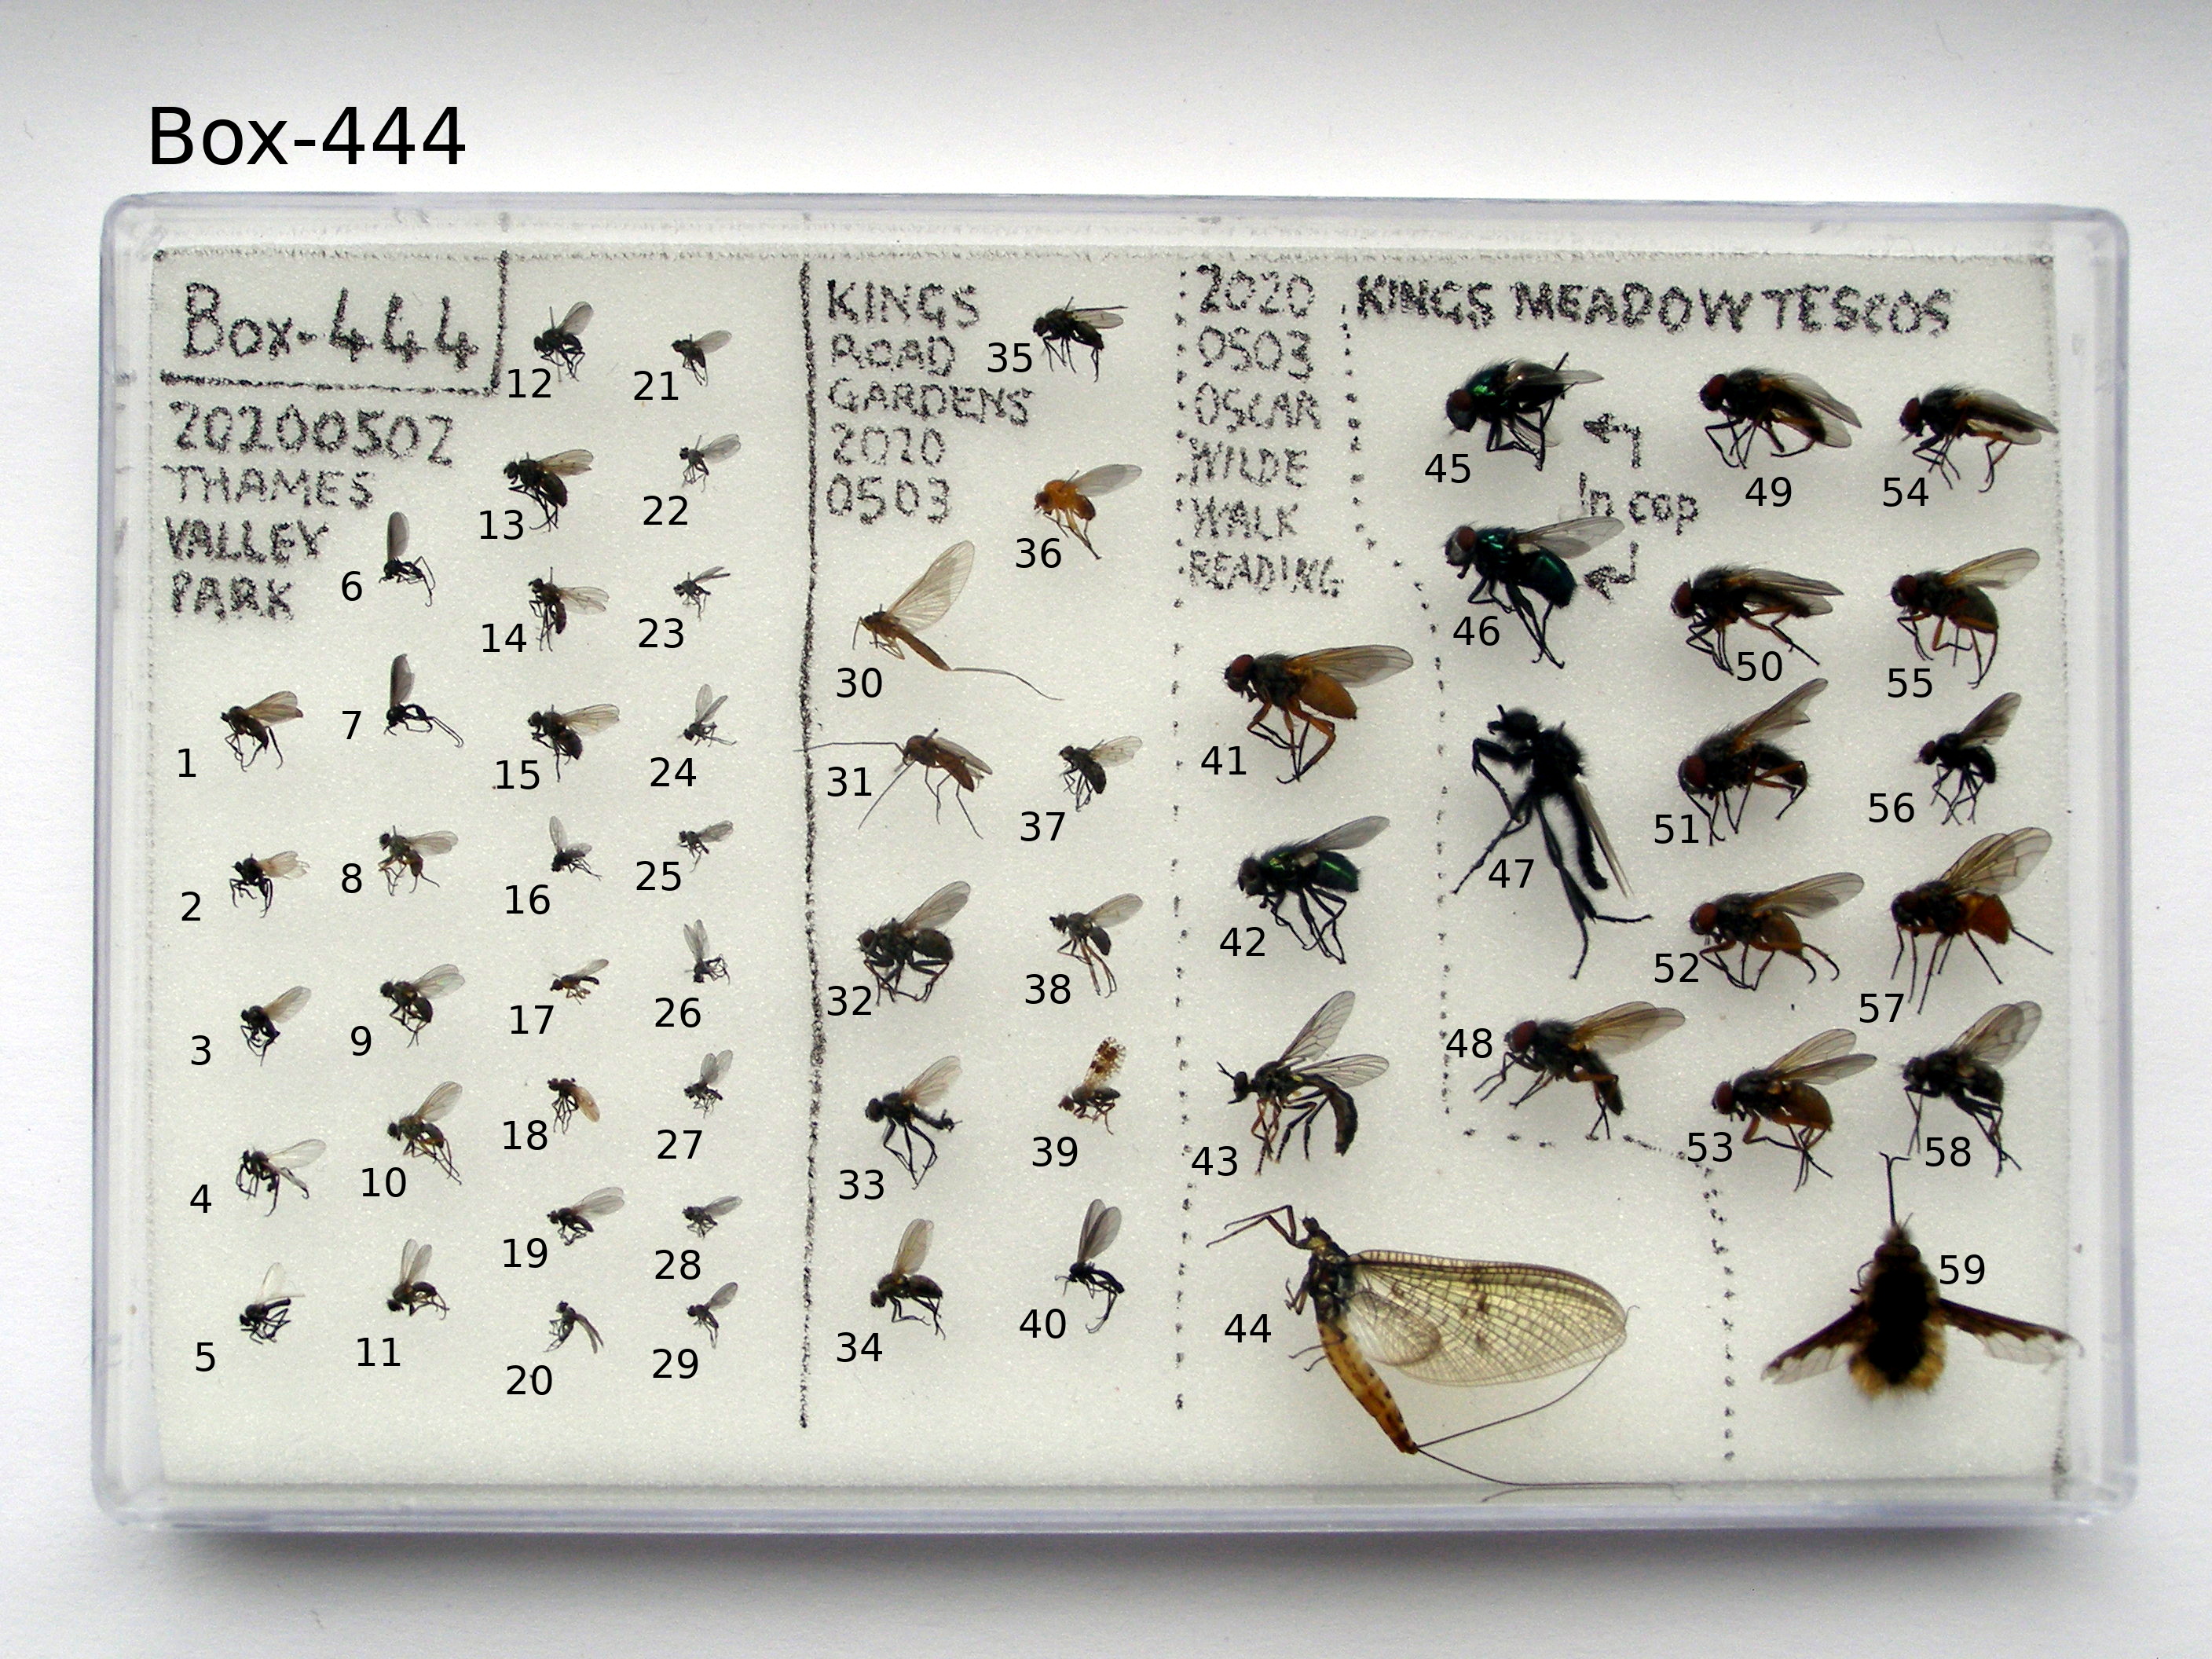 Box-444
Box-444
20200502
THAMES
VALLEY
PARK
1
2
3
4
5
6
7
8
9
10
11
12
13
14
15
16
17
18
19
20
21
22
23
24
25
26
27
28
29
KINGS
ROAD
GARDENS
2020
0503
30
31
32
33
34
35
36
37
38
39
40
2020
0503
OSCAR
WILDE
WALK
READING
41
42
43
44
KINGS MEADOW TESCOS
45
In cop
46
47
48
49
50
51
52
53
54
55
56
57
58
59